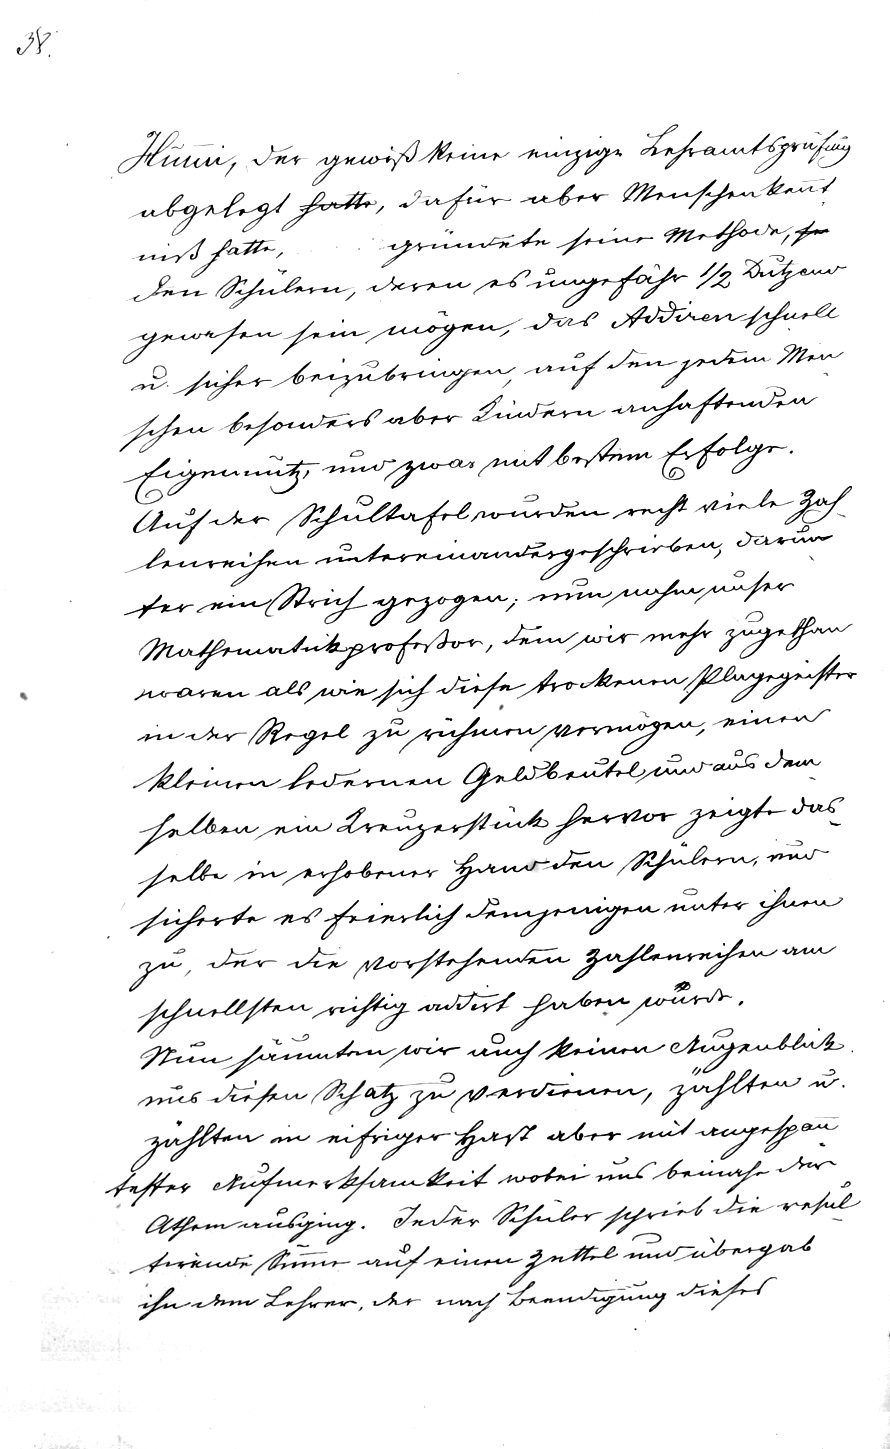 38.
Humi, der gewiß keine einzige Lehramtsprüfung
abgelegt hatte, dafür aber Menschenkennt
niß hatte, gründete seine Methode,
den Schülern, deren es ungefähr 1/2 Dutzend
gewesen sein mögen, das Addiren schnell
u. sicher beizubringen, auf den jedem Men
schen besonders aber Kindern anhaftenden
Eigennutz, und zwar mit bestem Erfolge.
Auf der Schultafel wurden recht viele Zah-
lenreihen untereinandergeschrieben, darun
ter ein Strich gezogen; nun nahm unser
Mathematikprofeßor, dem wir mehr zugethan
waren als wie sich diese trockenen Plagegeister
in der Regel zu rühmen vermögen, einen
kleinen ledernen Geldbeutel und aus dem
selben ein Kreuzerstück hervor zeigte das-
selbe in erhobener Hand den Schülern, und
sicherte es feierlich demjenigen unter ihnen
zu, der die vorstehenden Zahlenreihen am
schnellsten richtig addirt haben würde.
Nun säumten wir auch keinen Augenblick
uns diesen Schatz zu verdienen, zählten u.
zählten in eifriger Hast aber mit angespann
tester Aufmerksamkeit wobei uns beinahe der
Athem ausging. Jeder Schüler schrieb die resul-
tirende Summe auf einen Zettel und übergab
ihn dem Lehrer, der nach Beendigung dieses